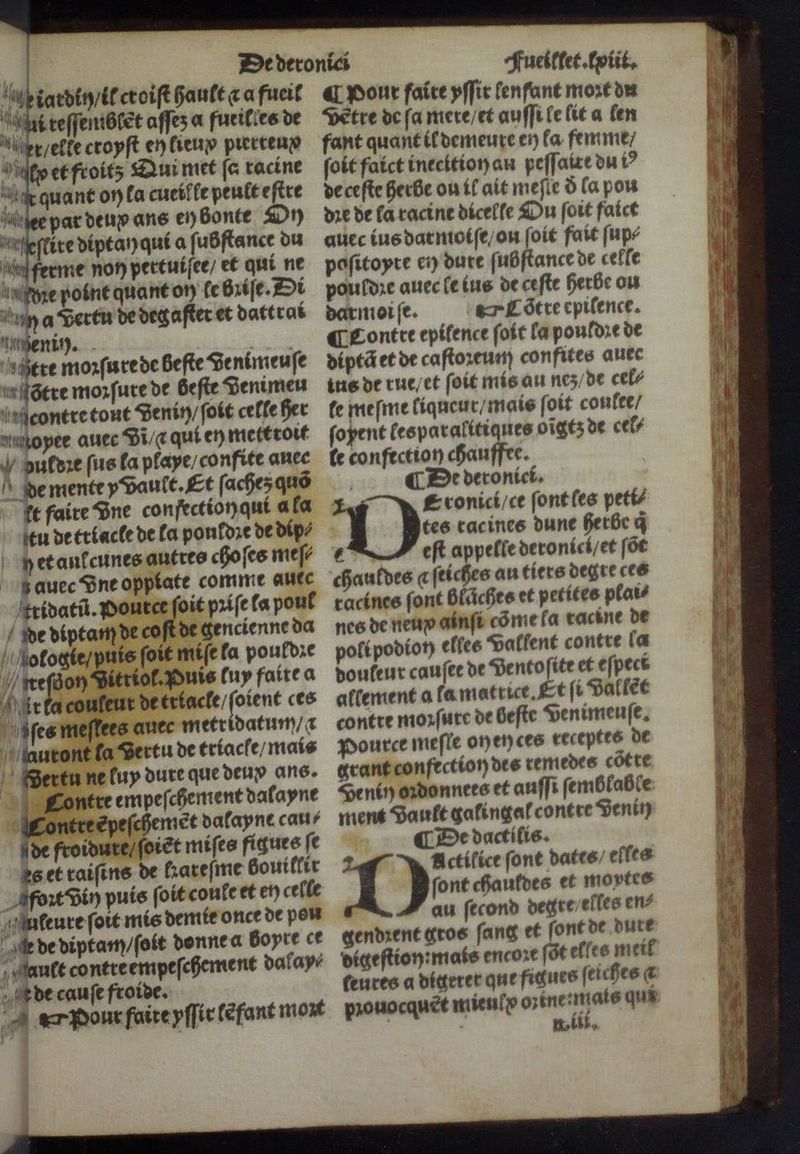 De deronici
Fueillet.lxiii.
iardin/il croist hault ⁊ a fueil
ressemblẽt assez a fueilles de
elle croyst en lieux pierreux
et froitz Qui met sa racine
quant on la cueille peult estre
par deux ans en bonte On
diptan qui a substance du
ferme non pertuisee/ et qui ne
point quant on le brise. Di
a vertu de degaster et dattrai
morsure de beste venimeuse
morsure de beste venimeu
contre tout venin/soit celle her
auec vĩ/⁊ qui en mettroit
sus la playe/confite auec
de mente y vault. Et sachez quõ
faire vne confection qui a la
de triacle de la pouldre de dip⸗
et aulcunes autres choses mes⸗
auec vne oppiate comme auec
Pource soit prise la poul
de diptam de cost de gencienne da
puis soit mise la pouldre
vitriol. Puis luy faire a
la couleur de triacle/soient ces
meslees auec metridatum/⁊
auront la vertu de triacle/mais
vertu ne luy dure que deux ans.
Contre empeschement dalayne
Contre ẽpeschemẽt dalayne cau⸗
de froidure/soiẽt mises figues se
et raisins de karesme bouillir
vin puis soit coule et en celle
soit mis demie once de pou
de diptam/soit donne a boyre ce
vault contre empeschement dalay⸗
de cause froide.
☞ Pour faire yssir lẽfant mort
¶ Pour faire yssir lenfant mort du
vẽtre de sa mere/et aussi le lit a len
fant quant il demeure en la femme/
soit faict inecition au pessaire du iꝰ
de ceste herbe ou il ait mesle ð la pou
dre de la racine dicelle Ou soit faict
auec ius darmoise/ou soit fait sup⸗
positoyre en dure substance de celle
pouldre auec le ius de ceste herbe ou
darmoise. ☞ Cõtre epilence.
¶ Contre epilence soit la pouldre de
diptã et de castoreum confites auec
ius de rue/et soit mis au nez/de cel⸗
le mesme liqueur/mais soit coulee/
soyent les paralitiques oigtz de cel⸗
le confection chauffee.
¶ De deronici.
DEronici/ce sont les peti⸗
tes racines dune herbe q̃
est appelle deronici/et sõt
chauldes ⁊ seiches au tiers degre ces
racines sont blãches et petites plai⸗
nes de neux ainsi cõme la racine de
polipodion elles vallent contre la
douleur causee de ventosite et especi
allement a la matrice. Et si vallẽt
contre morsure de beste venimeuse.
Pource mesle on en ces receptes de
grant confection des remedes cõtre
venin ordonnees et aussi semblable
ment vault galingal contre venin
¶ De dactilis.
DActilice sont dates/ elles
sont chauldes et moytes
au second degre/elles en⸗
gendrent gros sang et sont de dure
digestion:mais encore sõt elles meil
leures a digerer que figues seiches ⁊
prouocquẽt mieulx orine:mais qui
n.iii.